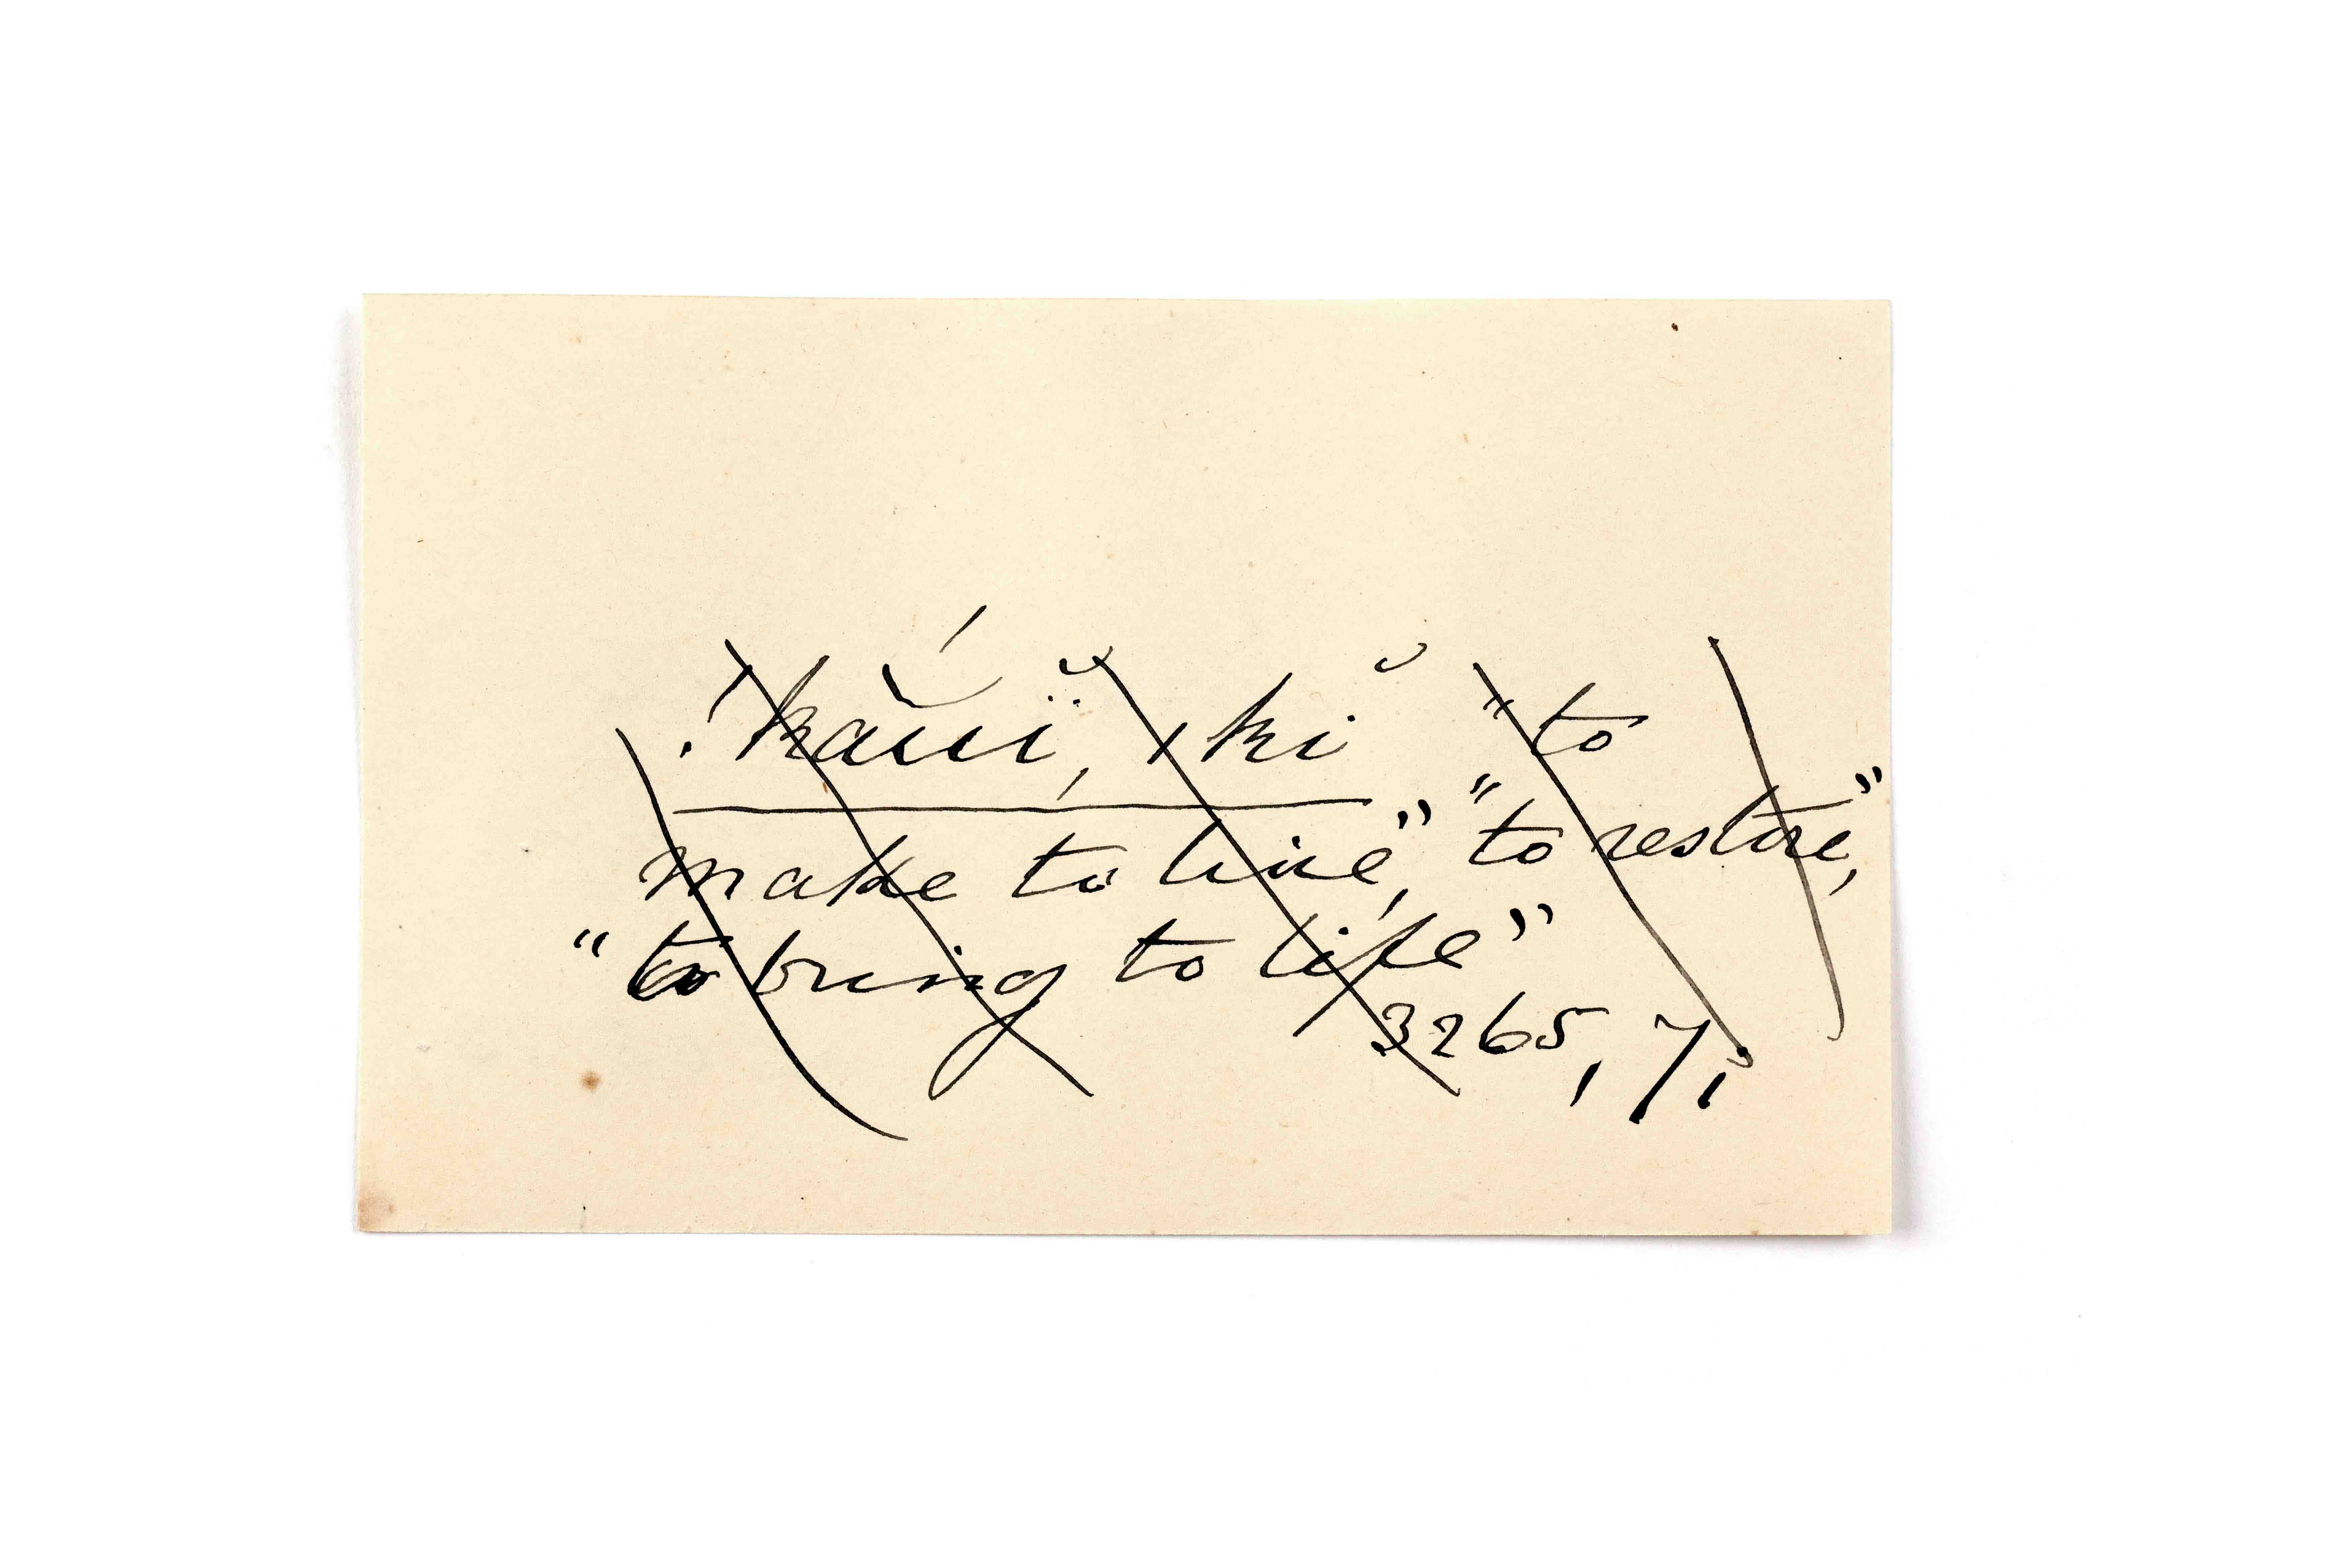 !kăúï̆, !kĭ "to
make to live," "to restore,"
"to bring to life"
3265, 7,